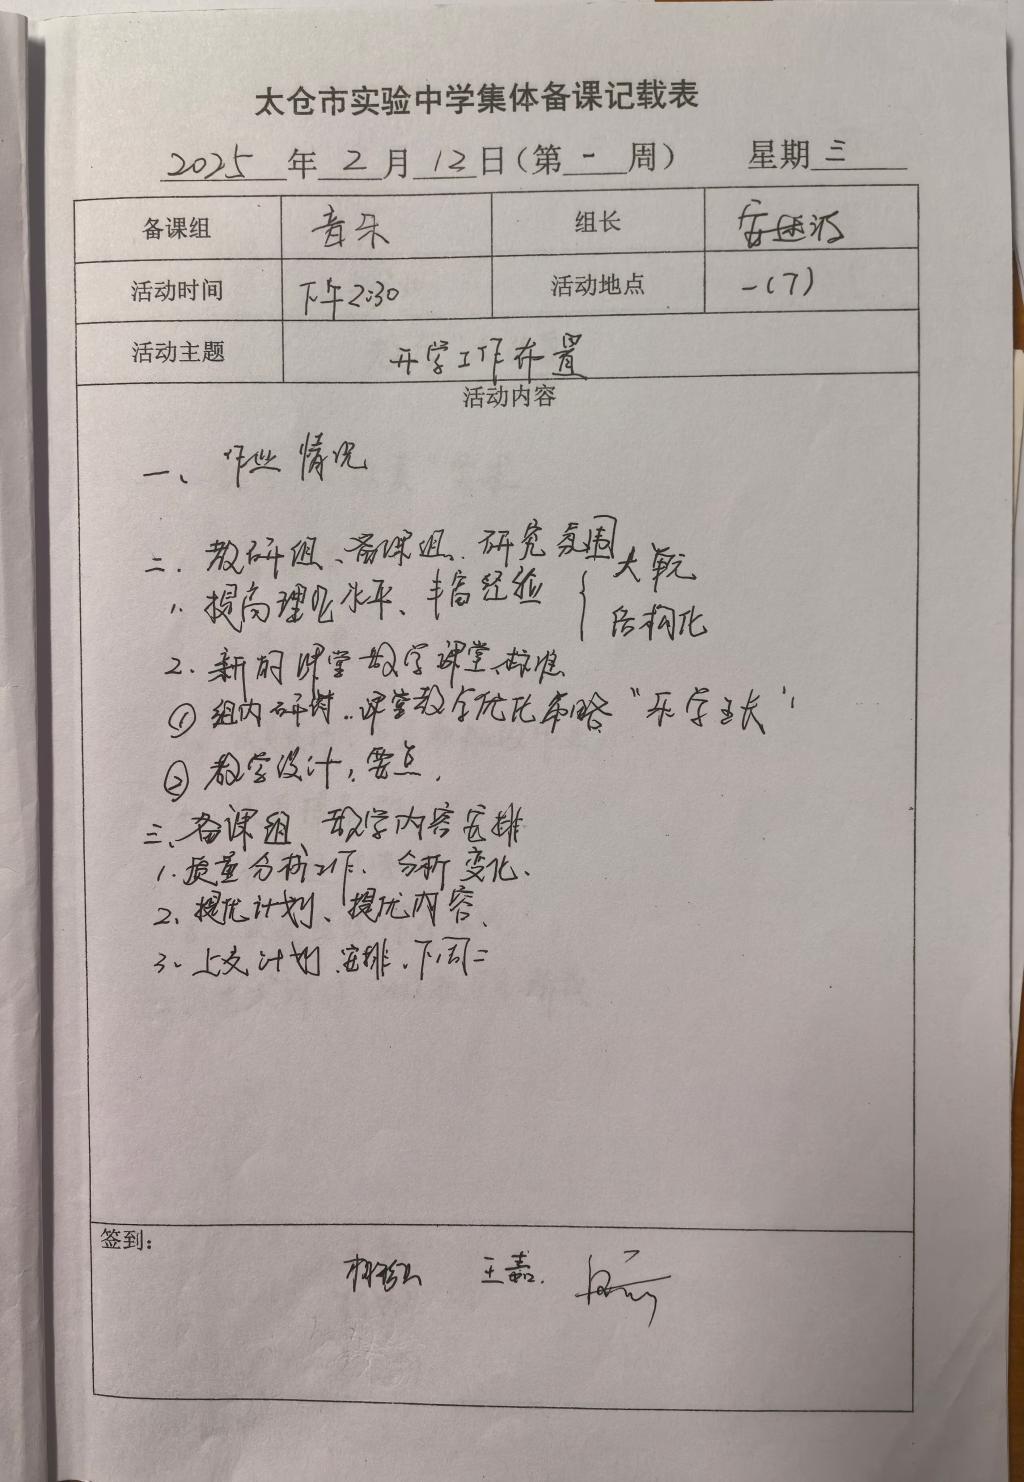 太仓市实验中学集体备课记载表
2025年2月12日（第一周） 星期三
备课组 音乐 组长
活动时间 下午2:30 活动地点 一(7)
活动主题 开学工作布置
活动内容
一、作业情况
二、教研组、备课组、研究氛围
1、提高理论水平、丰富经验 { 大单元 结构化
2、新的课堂教学课堂标准
① 组内研讨、课堂教学优化策略 “乐学生长”
② 教学设计，要点.
三、备课组、教学内容安排
1、质量分析工作、分析变化、
2、提优计划、提优内容、
3、上交计划 安排、下周二
签到：
王嘉.